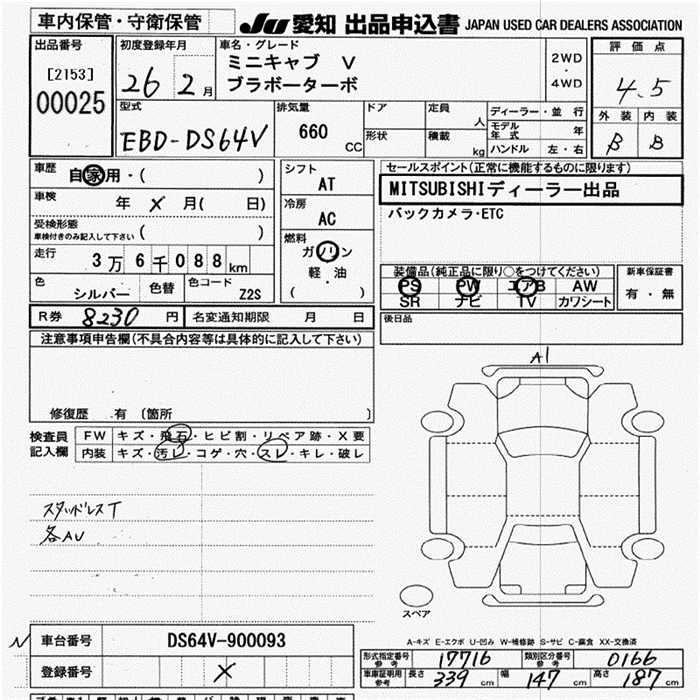 車内保管・守衛保管
JU 愛知 出品申込書 JAPAN USED CAR DEALERS ASSOCIATION
出品番号
[2153]
00025
初度登録年月
26 2 月
車名・グレード
ミニキャブ V
ブラボーターボ
2WD
・
4WD
評価点
4.5
外装 内装
B B
型式
EBD-DS64V
排気量
660
CC
ドア
形状
定員
人
積載
kg
ディーラー・並行
モデル年式 年
ハンドル 左・右
車歴
自家用・( )
車検
年 × 月( 日)
受検形態
車検付きのみ記入して下さい ( )
走行
3万6千088km
色
シルバー
色替
色コード
Z2S
シフト
AT
冷房
AC
燃料
ガソリン
軽・油
( )
セールスポイント(正常に機能するものに限ります)
MITSUBISHIディーラー出品
バックカメラ・ETC
装備品(純正品に限り○をつけてください)
PS PW エアB AW
SR ナビ TV カワシート
新車保証書
有・無
R券 8230 円
名変通知期限 月 日
後日品
注意事項申告欄(不具合内容等は具体的に記入して下さい)
修復歴 有 (箇所 )
検査員
記入欄
FW キズ・飛石・ヒビ割・リペア跡・X要
内装 キズ・汚レ・コゲ・穴・スレ・キレ・破レ
スタッドレスT
各AU
A1
スペア
A-キズ E-エクボ U-凹み W-補修跡 S-サビ C-腐食 XX-交換済
N
車台番号 DS64V-900093
登録番号 ×
形式指定番号
参考
17716
類別区分番号
参考
0166
車庫証明用
参考
長さ 339 cm 幅 147 cm 高さ 187 cm